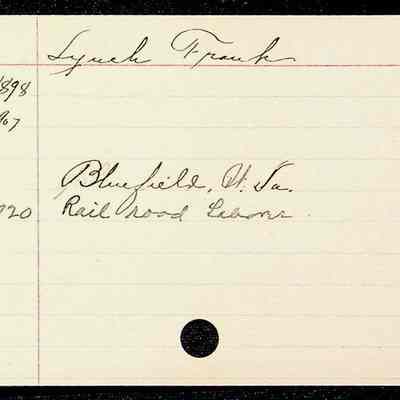 Lynch Frank
1898
907
Bluefield, W. Va.
920 Rail road Labour